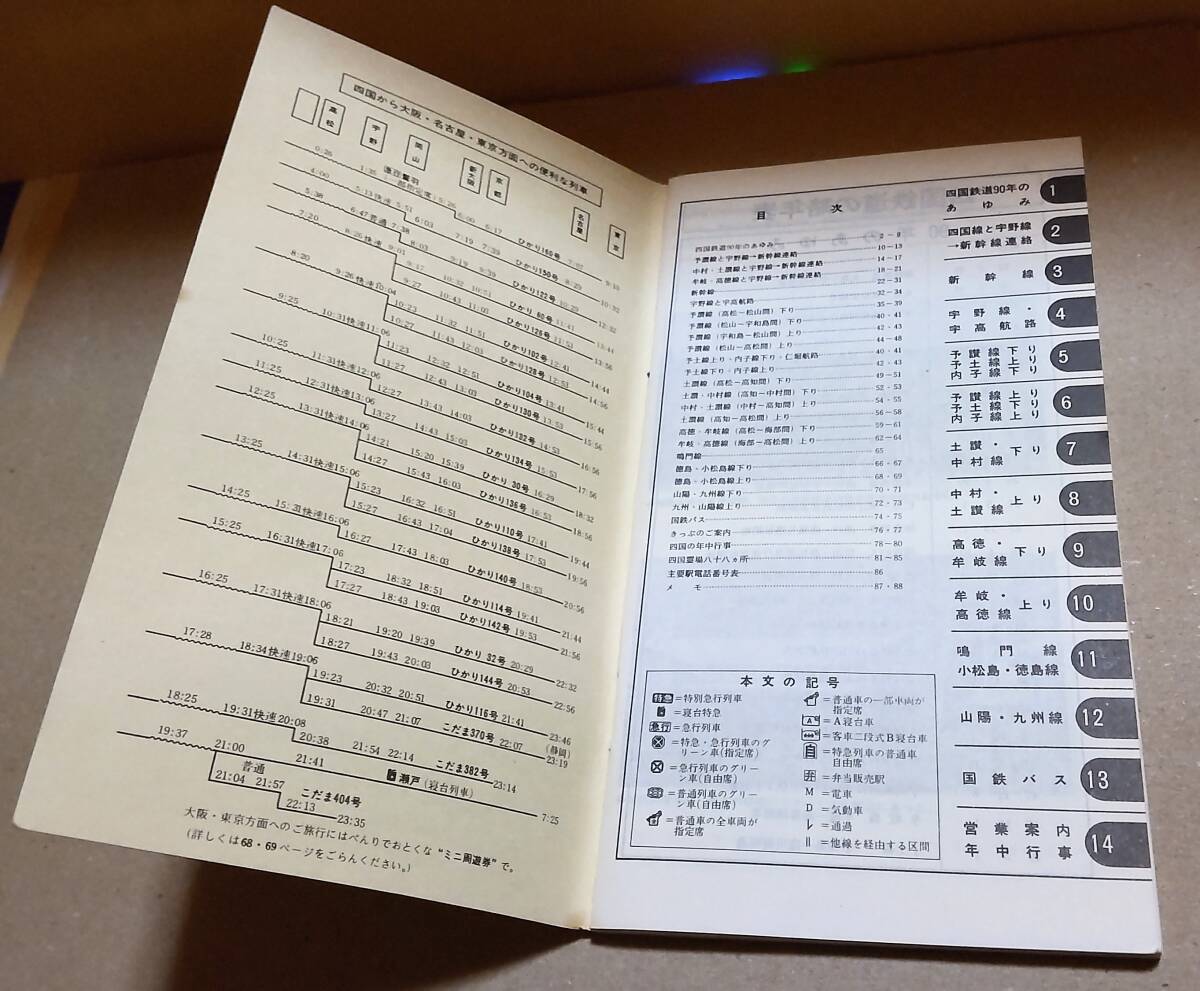 四国から大阪・名古屋・東京方面への便利な列車
高松
宇野
岡山
新大阪
京都
名古屋
東京
0:26
4:00
5:38 6:47普通7:38 8:03
7:20 8:26快速 9:01
8:20 9:26快速10:04
9:25 10:31快速11:06
10:25 11:31快速12:06
11:25 12:31快速13:06
12:25 13:31快速14:06
13:25 14:31快速15:06
14:25 15:31快速16:06
15:25 16:31快速17:06
16:25 17:31快速18:06
17:28 18:34快速19:06
18:25 19:31快速20:08
19:37 21:00
ひかり160号
ひかり150号 8:29
ひかり122号 10:29
ひかり 60号 11:41
ひかり126号 11:53
ひかり102号 13:56
ひかり128号
10:23 11:32 11:51
10:27 11:43 12:03
11:23 12:32 12:51 ひかり104号 13:41
11:27 12:43 13:03 ひかり130号 13:53 15:56
12:27 13:43 14:03 ひかり132号
13:27 14:43 15:03 ひかり134号 15:53 17:56
14:21 15:20 15:39 ひかり 30号 16:29 18:32
14:27 15:43 16:03 ひかり136号 16:53 18:56
15:23 16:32 16:51 ひかり110号 17:41 19:44
15:27 16:43 17:04 ひかり138号 17:53 19:56
16:27 17:43 18:03 ひかり140号 18:53 20:56
17:23 18:32 18:51 ひかり114号 19:41 21:44
17:27 18:43 19:03 ひかり142号 19:53 21:56
18:21 19:20 19:39 ひかり 32号 20:29 22:32
18:27 19:43 20:03 ひかり144号 20:53 22:56
19:23 20:32 20:51 ひかり116号 21:41 23:46
19:31 20:47 21:07 こだま370号 22:07 (静岡) 23:19
20:38 21:54 22:14 こだま382号 23:14
21:41 瀬戸(寝台列車) 7:25
普通
21:04 21:57 こだま404号
22:13 23:35
大阪・東京方面へのご旅行にはべんりでおとくな“ミニ周遊券”で。
(詳しくは68・69ページをごらんください。)
目 次
四国鉄道90年のあゆみ 2~9
予讃線と宇野線→新幹線連絡 10~13
中村・土讃線と宇野線→新幹線連絡 14~17
牟岐・高徳線と宇野線→新幹線連絡 18~21
新幹線 22~31
宇野線と宇高航路 32~34
予讃線(高松~松山間)下り 35~39
予讃線(松山~宇和島間)下り 40・41
予讃線(宇和島~松山間)上り 42・43
予讃線(松山~高松間)上り 44~48
予土線上り・内子線下り・仁堀航路 40・41
予土線下り・内子線上り 42・43
土讃線(高松~高知間)下り 49~51
土讃・中村線(高知~中村間)下り 52・53
中村・土讃線(中村~高知間)上り 54・55
土讃線(高知~高松間)上り 56~58
高徳・牟岐線(高松~海部間)下り 59~61
牟岐・高徳線(海部~高松間)上り 62~64
鳴門線 65
徳島・小松島線下り 66・67
徳島・小松島線上り 68・69
山陽・九州線下り 70・71
九州・山陽線上り 72・73
国鉄バス 74・75
きっぷのご案内 76・77
四国の年中行事 78~80
四国霊場八十八ヵ所 81~85
主要駅電話番号表 86
メ モ 87・88
本文の記号
特急=特別急行列車
=寝台特急
急行=急行列車
=特急・急行列車のグリーン車(指定席)
=急行列車のグリーン車(自由席)
=普通列車のグリーン車(自由席)
=普通車の全車両が指定席
=普通車の一部車両が指定席
A=A寝台車
=客車二段式B寝台車
自=特急列車の普通車自由席
弁=弁当販売駅
M=電車
D=気動車
レ=通過
||=他線を経由する区間
四国鉄道90年のあゆみ 1
四国線と宇野線→新幹線連絡 2
新幹線 3
宇野線・宇高航路 4
予讃線下り 予土線上り 内子線下り 5
予讃線上り 予土線下り 内子線上り 6
土讃・中村線 下り 7
中村・土讃線 上り 8
高徳・牟岐線 下り 9
牟岐・高徳線 上り 10
鳴門線 小松島・徳島線 11
山陽・九州線 12
国鉄バス 13
営業案内 年中行事 14